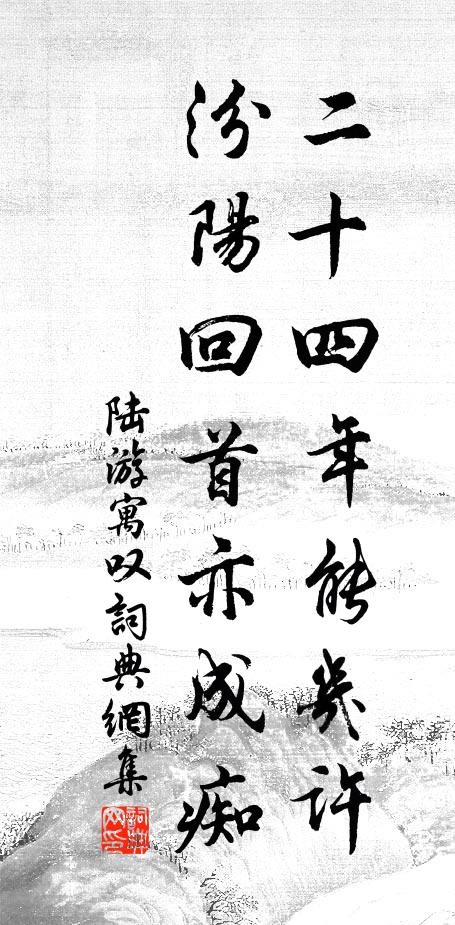 二十四年能幾許
汾陽回首亦成痴
陆游寓叹詞典網集